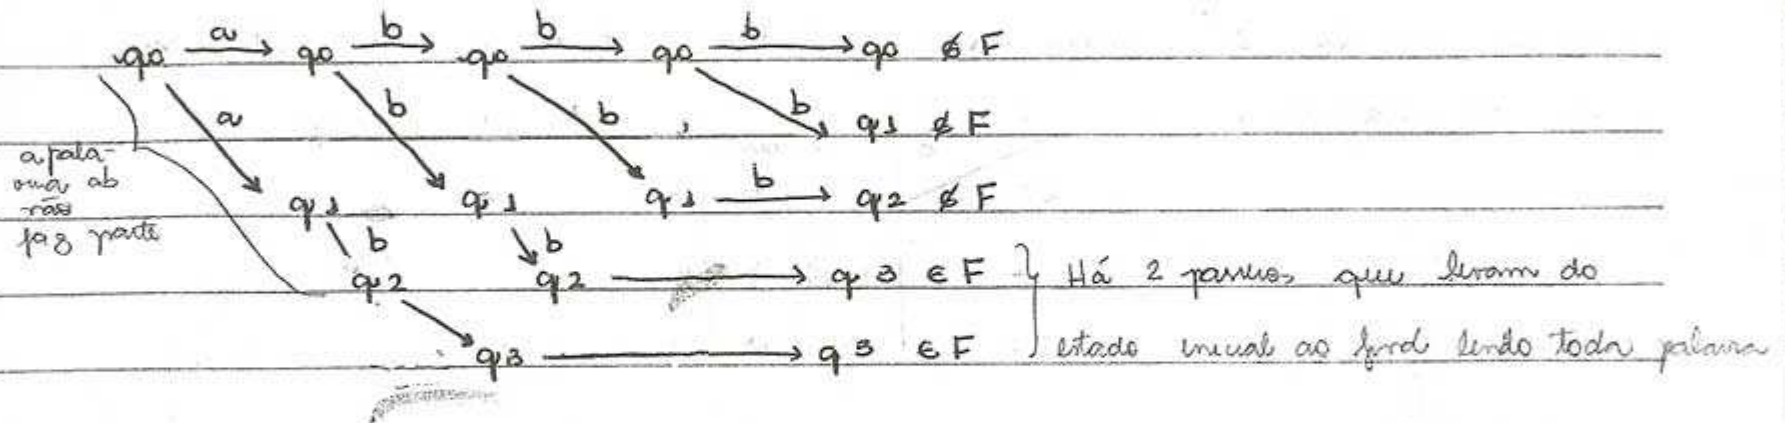 q0 a→ q0 b→ q0 b→ q0 b→ q0 ∉ F
a b b b q1 ∉ F
a pala-
vra ab
não
faz parte
q1 q1 q1 b→ q2 ∉ F
b b
q2 q2 → q3 ∈ F } Há 2 passeios que levam do
q3 → q3 ∈ F estado inicial ao final lendo toda palavra